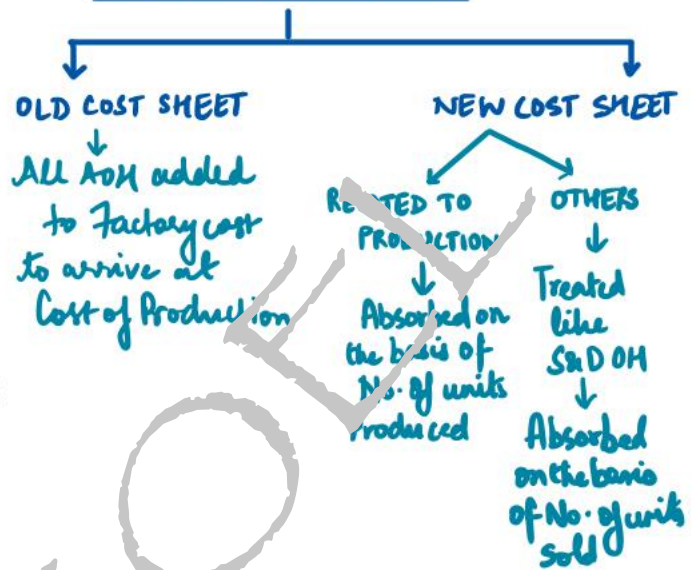 OLD COST SHEET
All AOH added
to Factory cost
to arrive at
Cost of Production
NEW COST SHEET
RELATED TO
PRODUCTION
Absorbed on
the basis of
No. of units
Produced
OTHERS
Treated
like
S&D OH
Absorbed
on the basis
of No. of units
Sold